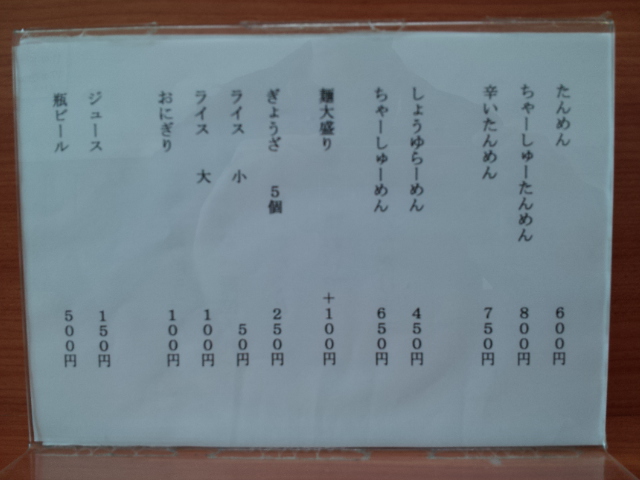 たんめん 600円
ちゃーしゅーたんめん 800円
辛いたんめん 750円
しょうゆらーめん 450円
ちゃーしゅーめん 650円
麺大盛り +100円
ぎょうざ 5個 250円
ライス 小 50円
ライス 大 100円
おにぎり 100円
ジュース 150円
瓶ビール 500円